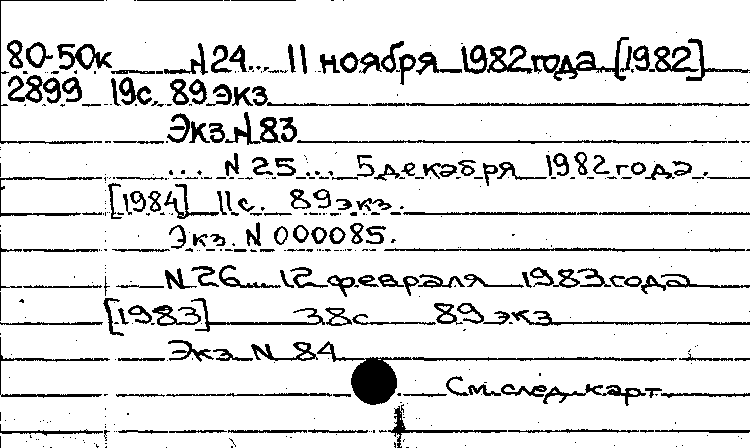 80-50к N24... 11 ноября 1982 года [1982]
2899 19с. 89 экз.
Экз. N 83
... N 25 ... 5 декабря 1982 года.
[1984] 11с. 89 экз.
Экз. N 000085.
N 26 ... 12 февраля 1983 года
[1983] 38с 89 экз
Экз N 84
См. след. карт.